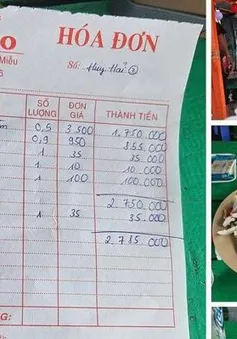 HÓA ĐƠN
Miễu
Số: Huy Hải 2
SỐ LƯỢNG ĐƠN GIÁ THÀNH TIỀN
0,5 3.500 1.750.000
0,9 950 855.000
1 35 35.000
1 10 10.000
1 100 100.000
2.750.000
1 35 35.000
2.785.000
NG: